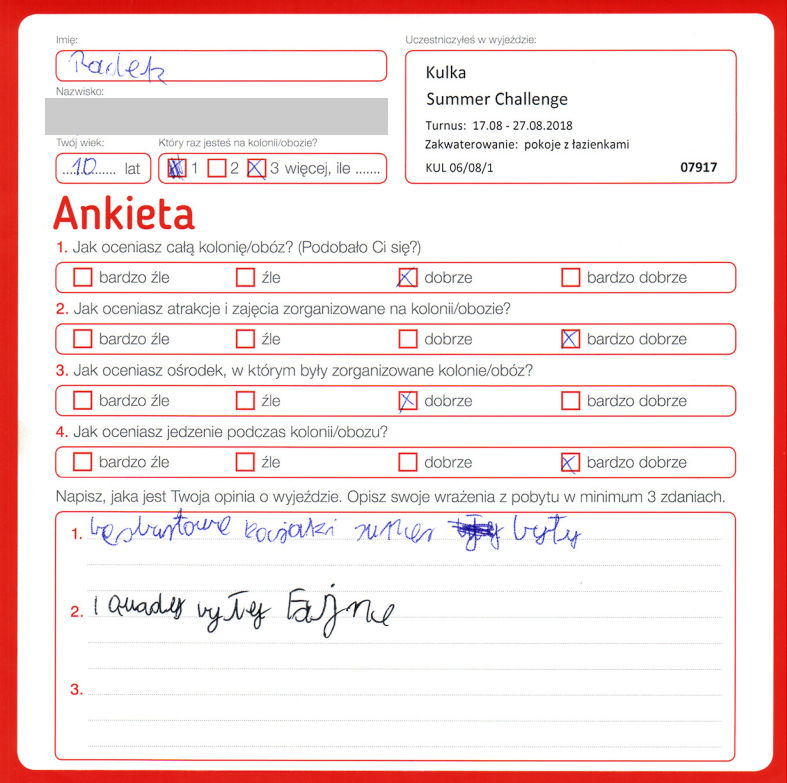 Imię:
Radek
Uczestniczyłeś w wyjeździe:
Kulka
Summer Challenge
Turnus: 17.08 - 27.08.2018
Zakwaterowanie: pokoje z łazienkami
KUL 06/08/1 07917
Nazwisko:
Twój wiek:
10 lat
Który raz jesteś na kolonii/obozie?
1 2 3 więcej, ile .......
Ankieta
1. Jak oceniasz całą kolonię/obóz? (Podobało Ci się?)
bardzo źle źle dobrze bardzo dobrze
2. Jak oceniasz atrakcje i zajęcia zorganizowane na kolonii/obozie?
bardzo źle źle dobrze bardzo dobrze
3. Jak oceniasz ośrodek, w którym były zorganizowane kolonie/obóz?
bardzo źle źle dobrze bardzo dobrze
4. Jak oceniasz jedzenie podczas kolonii/obozu?
bardzo źle źle dobrze bardzo dobrze
Napisz, jaka jest Twoja opinia o wyjeździe. Opisz swoje wrażenia z pobytu w minimum 3 zdaniach.
1. kajaki super były
2. I quady były Fajne
3.